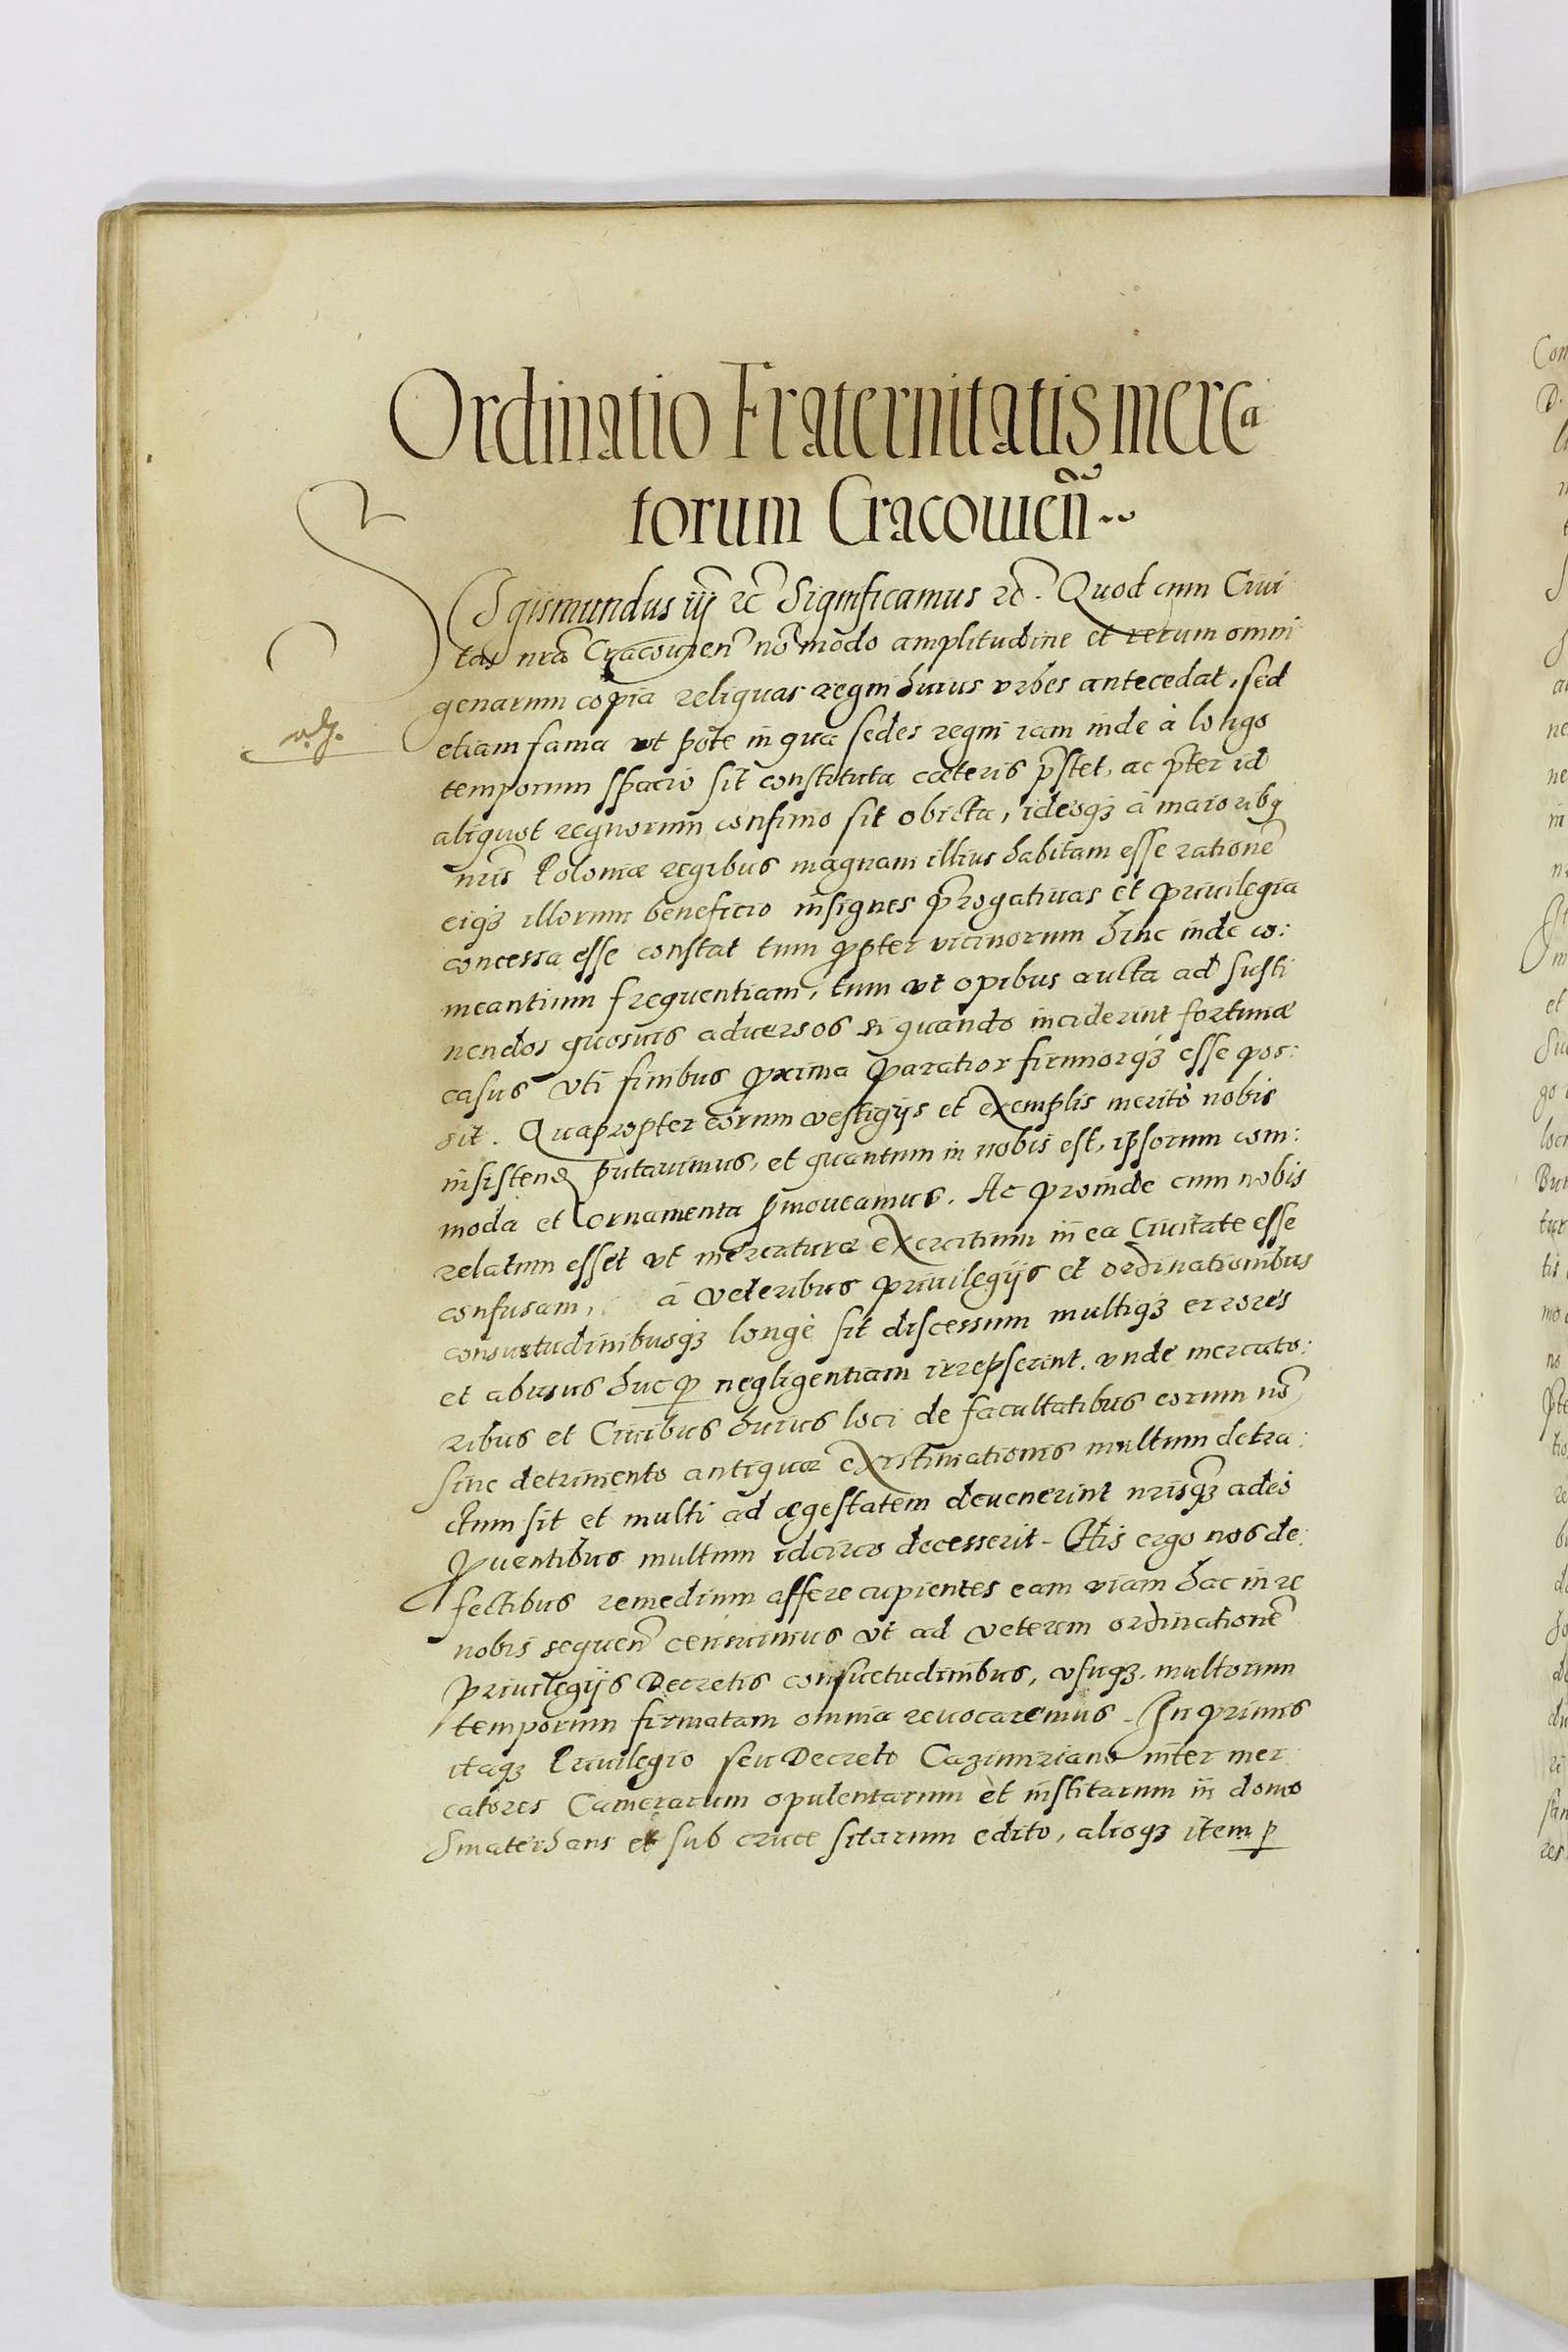 Ordinatio Fraternitatis merca
torum Cracouień
Sigismundus iij ꝛc Significamus ꝛc. Quod cum Ciui
tas nrã Cracouień nõ modo amplitudine et rerum omni
genarum copia reliquas regni huius vrbes antecedat, sed
etiam fama vt pote in qua sedes regni iam inde à longo
temporum spacio sit constituta cæteris p̃stet, ac p̃ter id
aliquot regnorum confinio sit obiecta, ideoqꝫ à maioribꝫ
nris̃ Poloniæ regibus magnam illius habitam esse rationẽ
eiqꝫ illorum beneficio insignes p̃rogatiuas et priuilegia
concessa esse constat tum ꝓpter vicinorum hinc inde co:
meantium frequentiam, tum vt opibus aucta ad susti
nendos quosuis aduersos si quando inciderint fortunæ
casus vti finibus ꝓxima paratior firmiorqꝫ esse pos:
sit. Quapropter eorum vestigijs et exemplis meritò nobis
insistend̃ putauimus, et quantum in nobis est, ipsorum com:
moda et ornamenta ꝓmoueamus. Ac proinde cum nobis
relatum esset vt mercaturæ exercitium in ea Ciuitate esse
confusam, à veteribus priuilegijs et ordinationibus
consuetudinibusqꝫ longè sit discessum multiqꝫ errores
et abusus huc ꝑ negligentiam irrepserint. vnde mercato:
ribus et Ciuibus huius loci de facultatibus eorum nõ
sine detrimento antiquæ existimationis multum detra:
ctum sit et multi ad ægestatem deuenerint nrisqꝫ adeò
ꝓuentibus multum idcirco decesserit. His ergo nos de:
fectibus remedium affere cupientes eam viam hac in re
nobis sequeñ censuimus vt ad veterem ordinationẽ
Priuilegijs Decretis consuetudinibus, vsuqꝫ multorum
temporum firmatam omnia reuocaremus. In primis
itaqꝫ Priuilegio seu Decreto Cazimiriano inter mer
catores Camerarum opulentarum et institarum in domo
Smaterhans et sub cruce sitarum edito, alioqꝫ item ꝑ